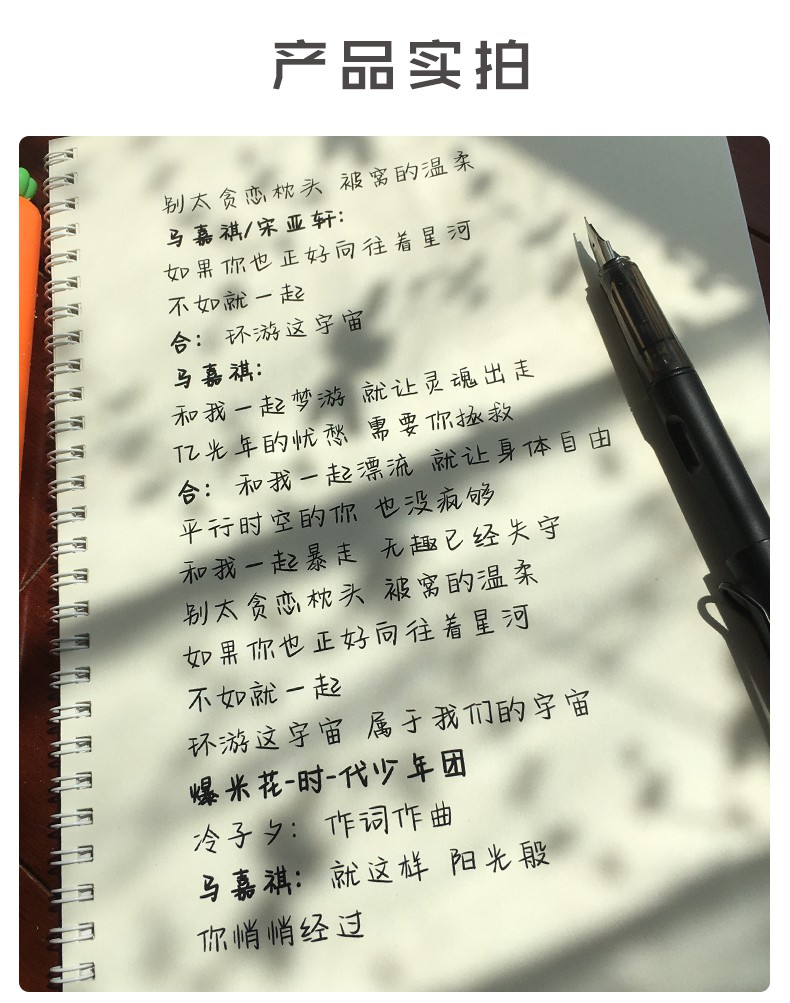 产品实拍
别太贪恋枕头 被窝的温柔
马嘉祺/宋亚轩:
如果你也正好向往着星河
不如就一起
合: 环游这宇宙
马嘉祺:
和我一起梦游 就让灵魂出走
亿光年的忧愁 需要你拯救
合: 和我一起漂流 就让身体自由
平行时空的你 也没疯够
和我一起暴走 无趣已经失守
别太贪恋枕头 被窝的温柔
如果你也正好向往着星河
不如就一起
环游这宇宙 属于我们的宇宙
爆米花-时-代少年团
冷子夕: 作词作曲
马嘉祺: 就这样 阳光般
你悄悄经过